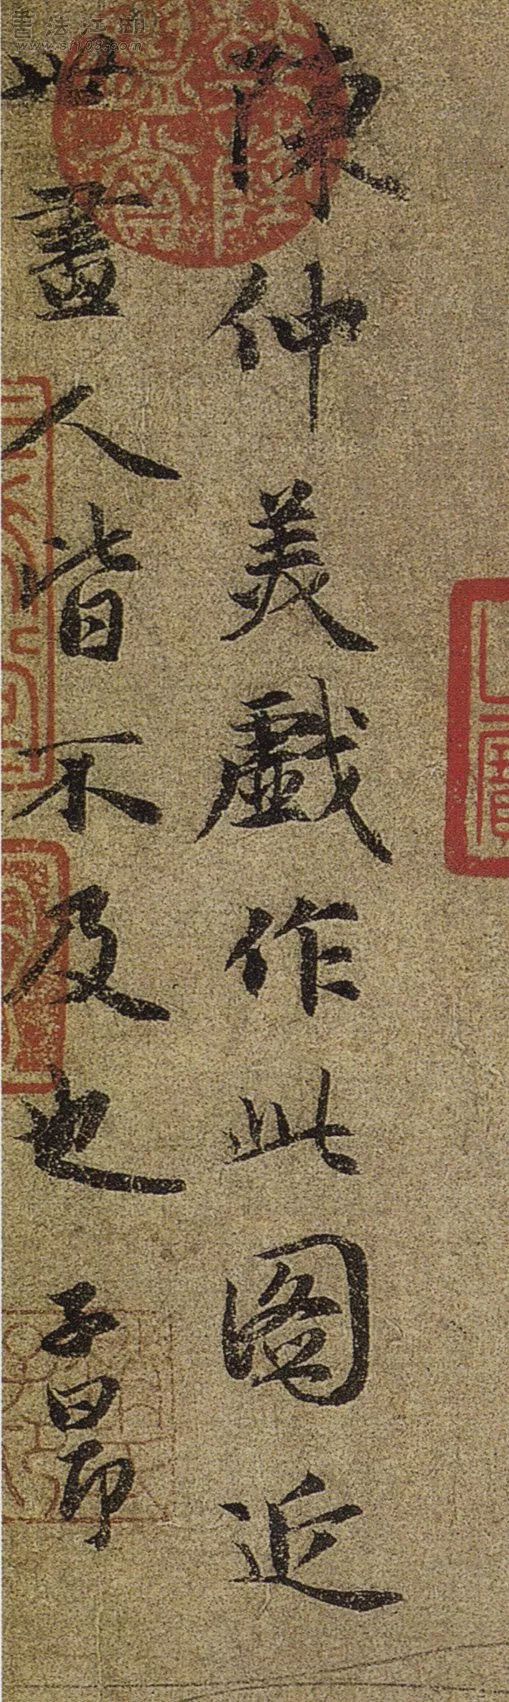 書法江湖
www.sf108.com
乾隆
鑑賞
陳仲美戲作此圖近
世畫人皆不及也 子昂